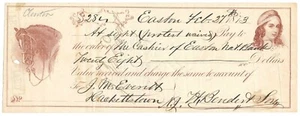 $28.00 Easton Feb 27th 1873
At sight (protest waiving) Pay to
the order of The Cashier of Easton Nat Bank
Twenty Eight Dollars
Value received and charge the same to account of
To J. M.
Hackettstown NJ. H. Bender & Son